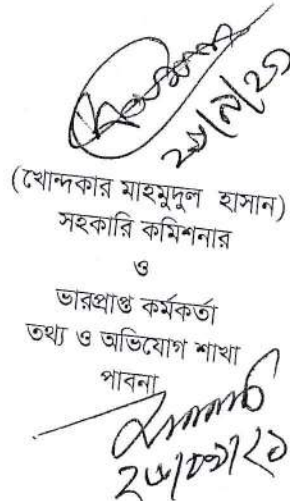 (খোন্দকার মাহমুদুল হাসান)
সহকারি কমিশনার
ও
ভারপ্রাপ্ত কর্মকর্তা
তথ্য ও অভিযোগ শাখা
পাবনা